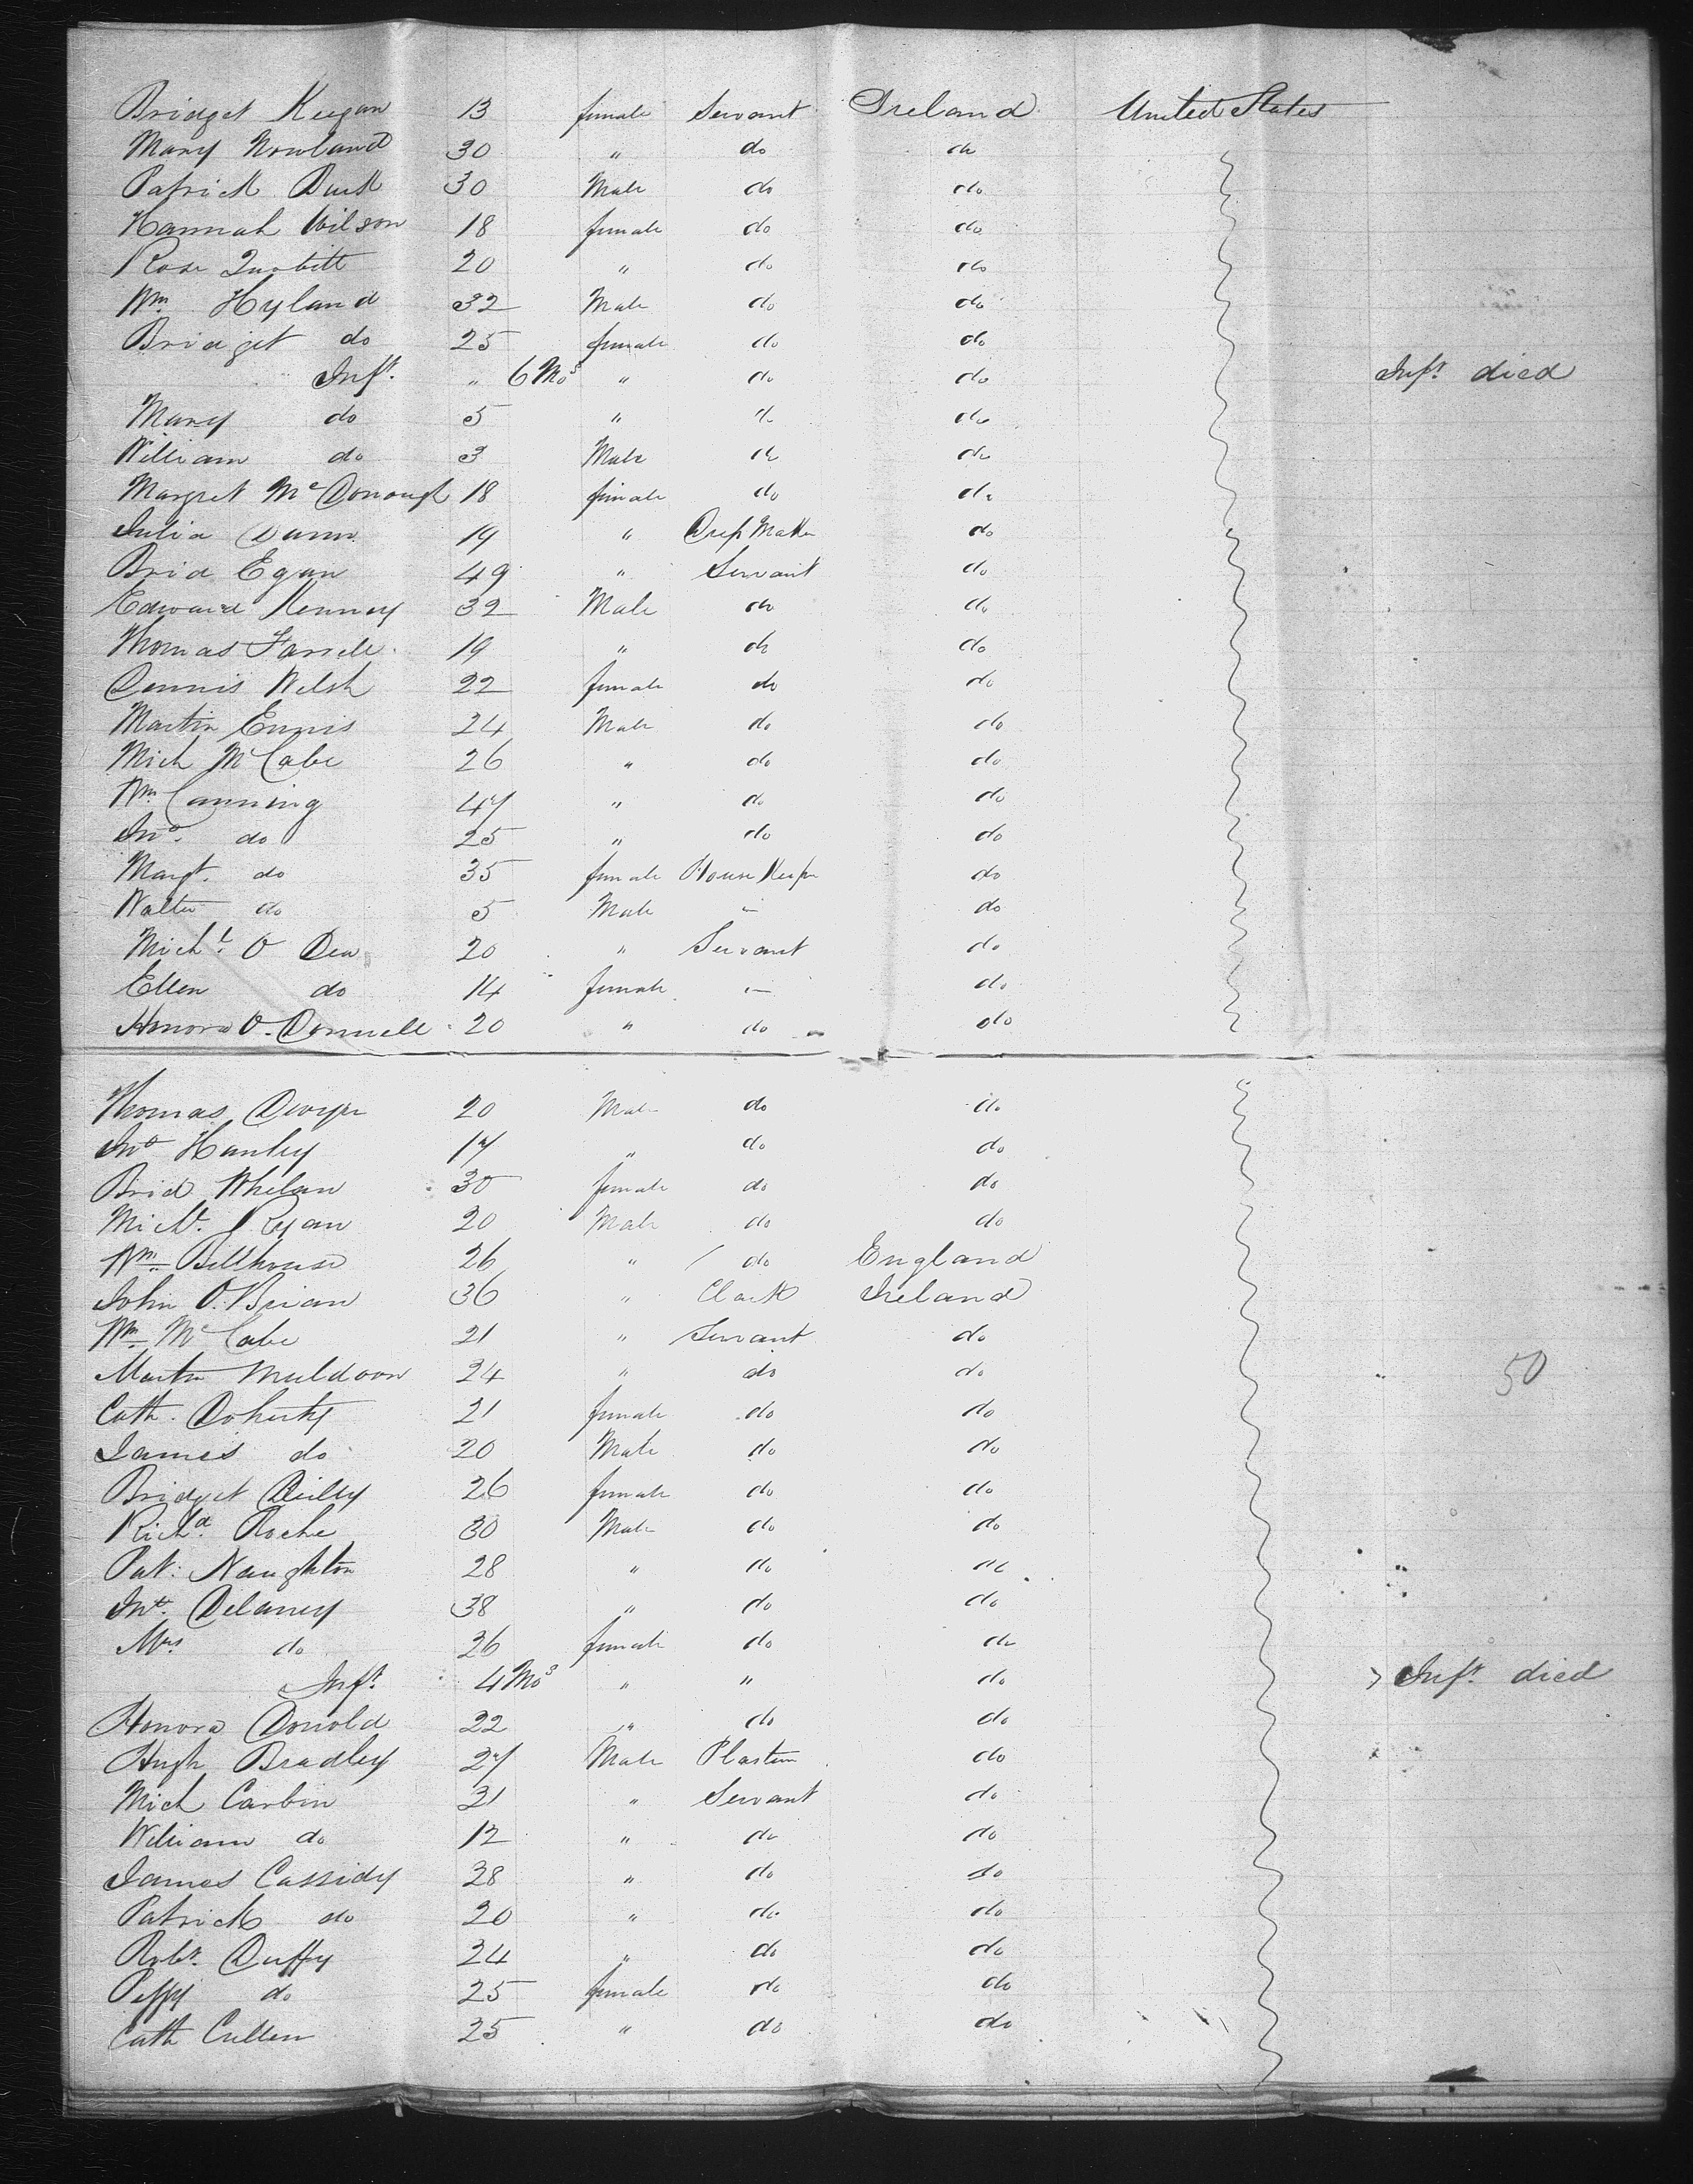 Bridget Keegan 13 female Servant Ireland United States
Mary Nowland 30 " do do
Patrick Durk 30 Male do do
Hannah Wilson 18 female do do
Rose 20 " do do
Wm. Hyland 32 Male do do
Bridget do 25 female do do
Inft. " 6 Mos " do do Inft died
Mary do 5 " do do
William do 3 Male do do
Margret McDonough 18 female do do
Julia Dunn 19 " Dress Maker do
Brid Egan 49 " Servant do
Edward Kenney 32 Male do do
Thomas Farrell 19 " do do
Dennis Welsh 22 female do do
Martin Ennis 24 Male do do
Mich McCabe 26 " do do
Wm Canning 47 " do do
Jno. do 25 " do do
Margt. do 35 female House Keeper do
Walter do 5 Male " do
Michl. O Dea 20 " Servant do
Ellen do 14 female " do
Honora O. Donnell 20 " do do
Thomas Dwyer 20 Male do do
Jno Hanley 17 " do do
Brid Whelan 30 female do do
Michl. Ryan 20 Male do do
Wm Billhouse 26 " do England
John O.Brian 36 " Clark Ireland
Wm McCabe 21 " Servant do
Martin Muldoon 24 " do do 50
Cath. Doherty 21 female do do
James do 20 Male do do
Bridget Reilly 26 female do do
Richd. Roche 30 Male do do
Pat: Naughton 28 " do do
Jno. Delaney 38 " do do
Mrs do 26 female do do
Inft. 4 Mos " " do Inft. died
Honora Donold 22 " do do
Hugh Bradley 27 Male Plasterer do
Mich Carbin 21 " Servant do
William do 12 " do do
James Cassidy 28 " do do
Patrick do 20 " do do
Robt. Duffy 24 " do do
Peggy do 25 female do do
Cath Cullen 25 " do do